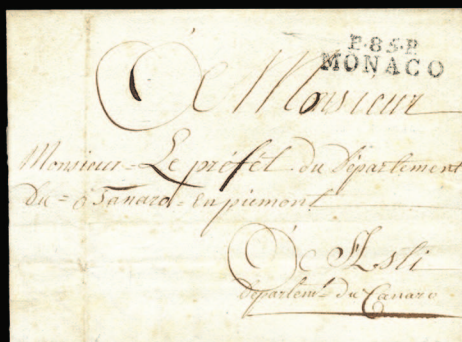 P.85.P.
MONACO
A Monsieur
Monsieur = Le préfét du Département
du = Tanaro = En piemont
A Asti
Departemt. du Tanaro